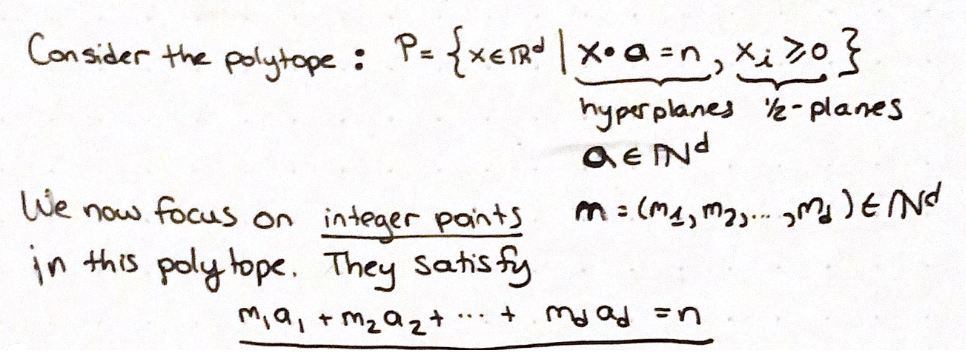 Consider the polytope : P = {x ∈ ℝᵈ | x • a = n, xᵢ ≥ 0}
hyperplanes ½-planes
a ∈ ℕᵈ
We now focus on integer points m = (m₁, m₂, ... , m_d) ∈ ℕᵈ
in this polytope. They satisfy
m₁a₁ + m₂a₂ + ... + m_d a_d = n